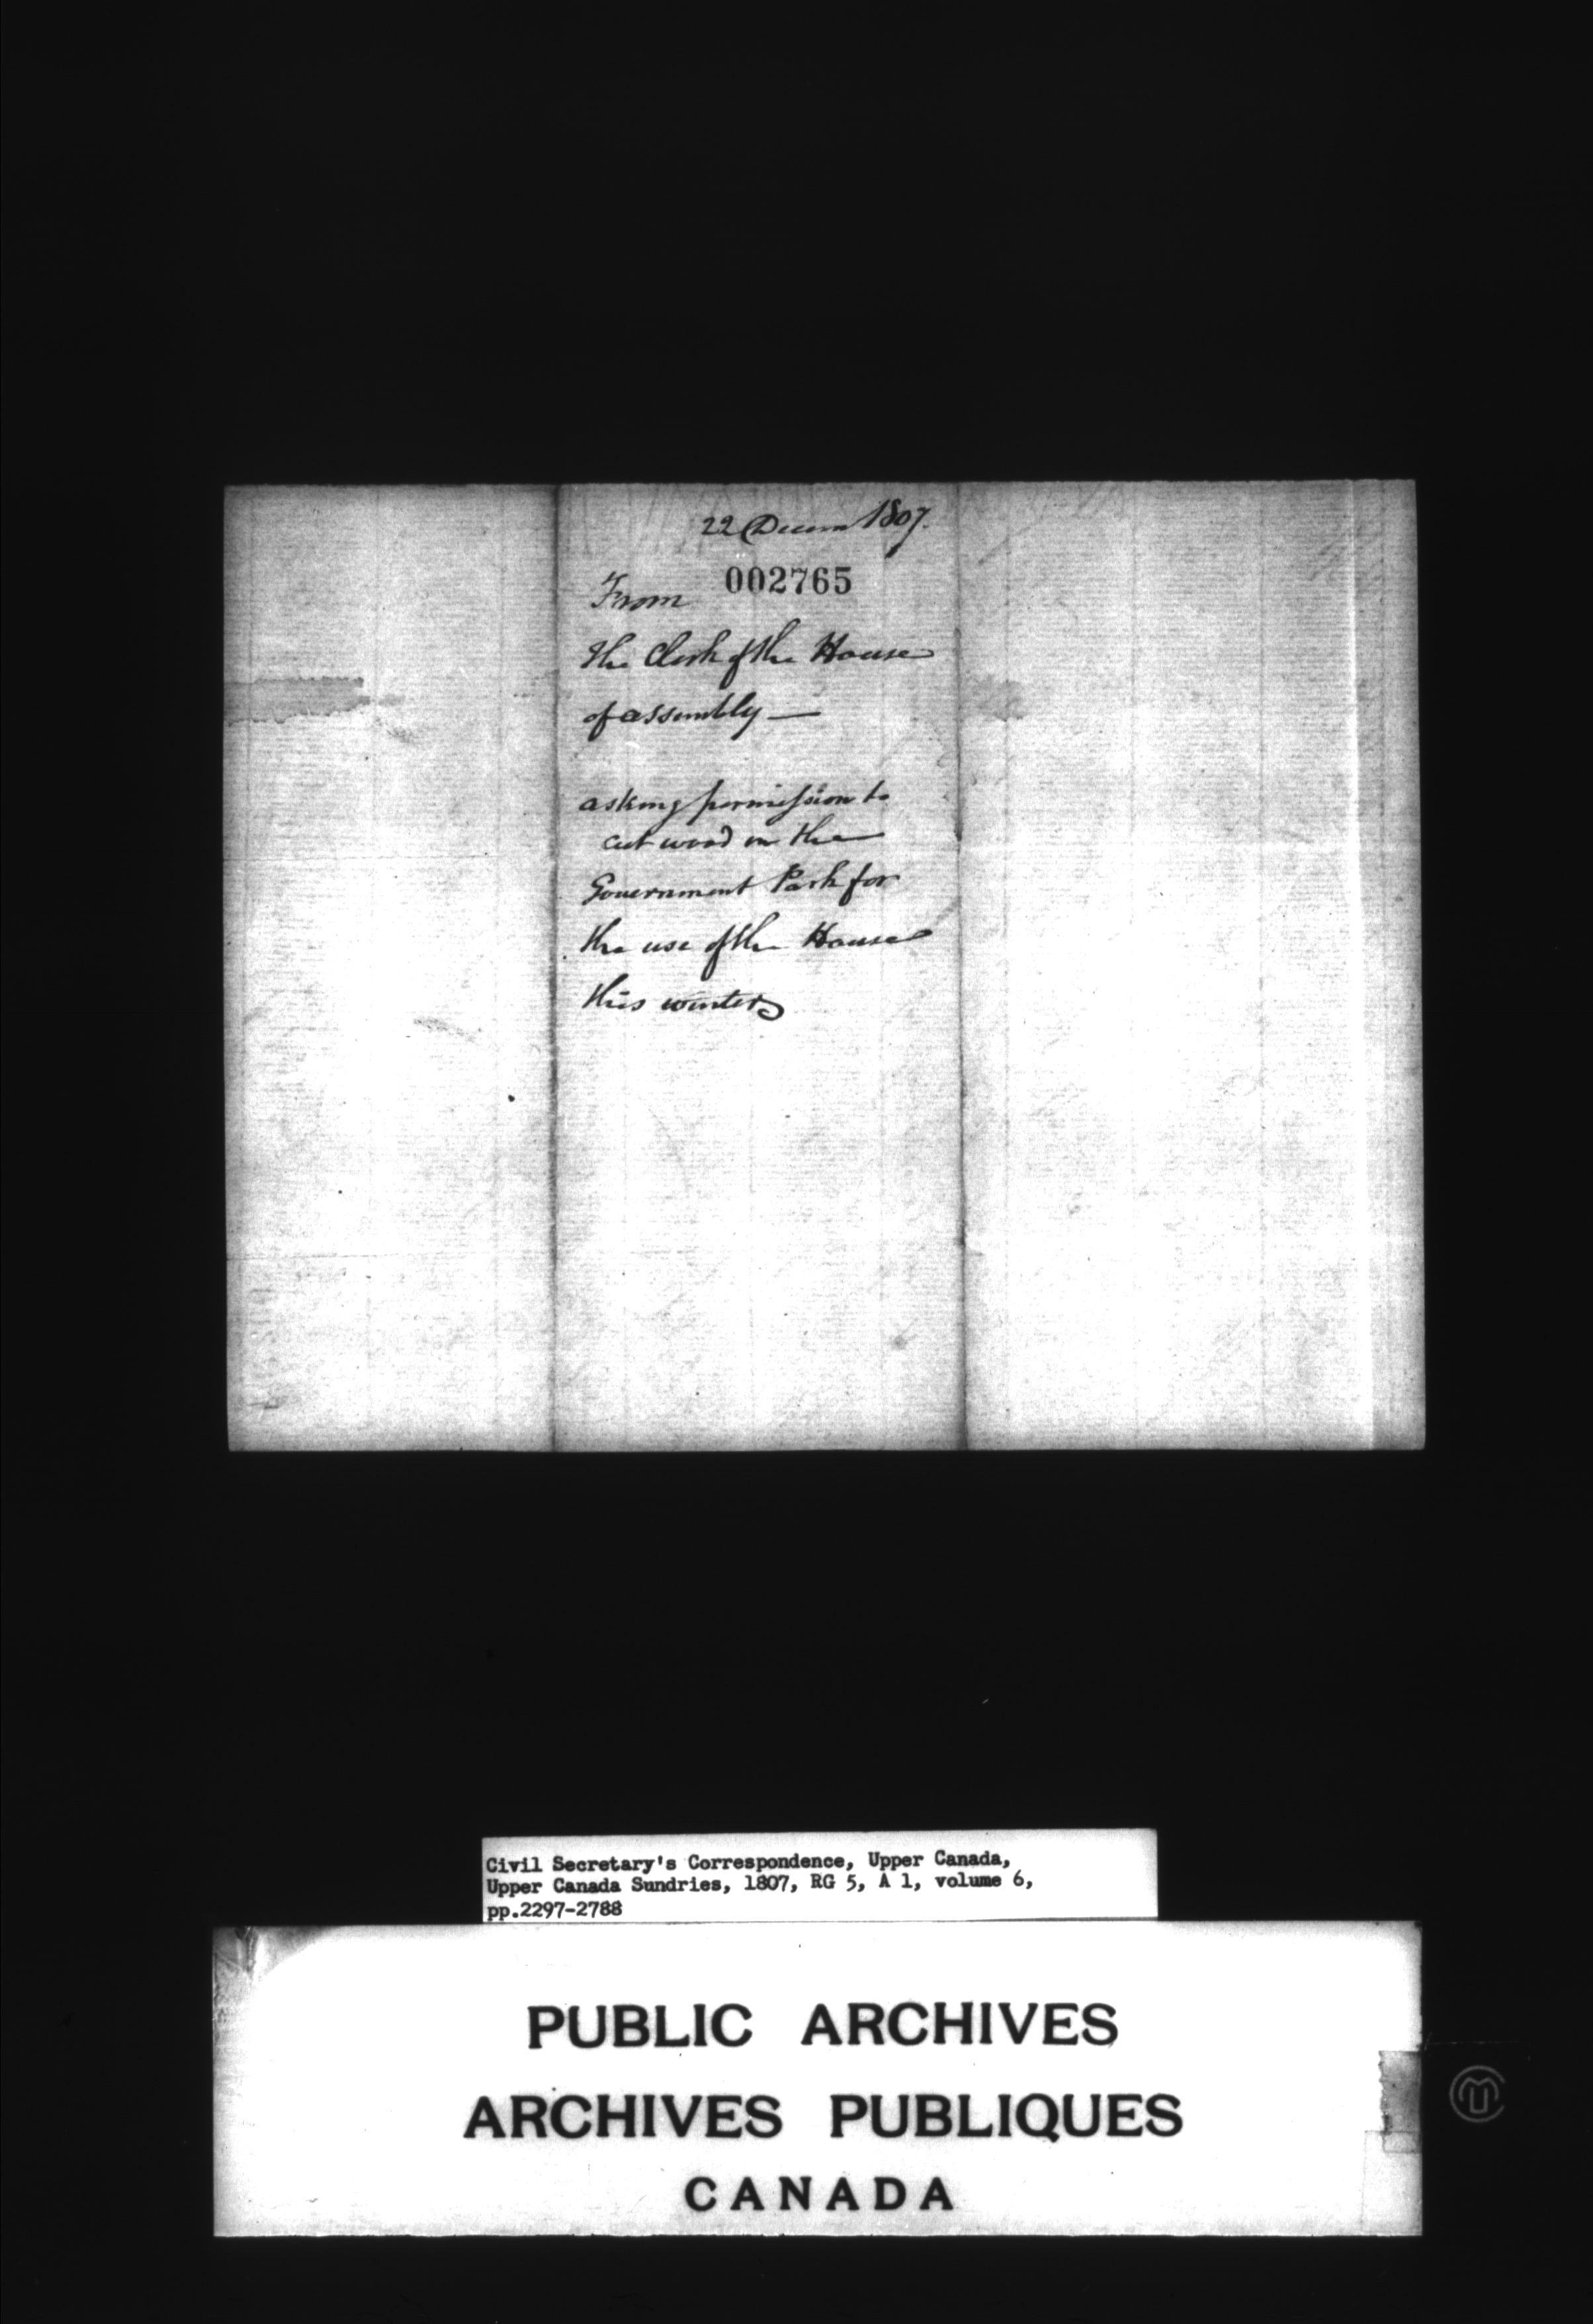 22 Decem 1807.
002765
From
The Clerk of the House
of assembly —
asking permission to
cut wood on the
Government Park for
the use of the House
this winter
Civil Secretary's Correspondence, Upper Canada,
Upper Canada Sundries, 1807, RG 5, A 1, volume 6,
pp.2297-2788
PUBLIC ARCHIVES
ARCHIVES PUBLIQUES
CANADA